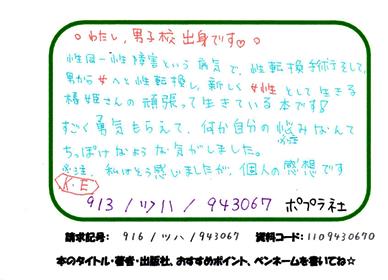 ○わたし、男子校出身です♡○
性同一性障害という病気で、性転換手術をして、
男から女へと性転換し、新しく女性として生きる
椿姫さんの頑張って生きている本です!
すごく勇気もらえて、何か自分の悩みなんて
ちっぽけなような気がしました。
※注
※注、私はそう感じましたが、個人の感想です
K・E
913/ツハ/943067 ポプラ社
請求記号: 916/ツハ/943067 資料コード:1109430670
本のタイトル・著者・出版社、おすすめポイント、ペンネームを書いてね☆